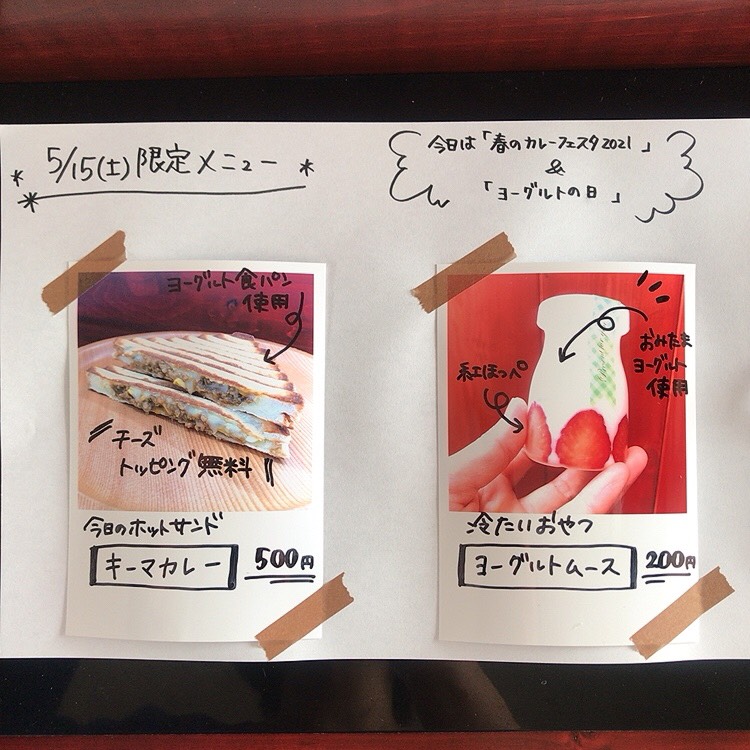 5/15(土)限定メニュー
今日は「春のカレーフェスタ2021」
&
「ヨーグルトの日」
ヨーグルト食パン
使用
チーズ
トッピング無料
今日のホットサンド
キーマカレー 500円
おみたま
ヨーグルト
使用
紅ほっぺ
冷たいおやつ
ヨーグルトムース 200円